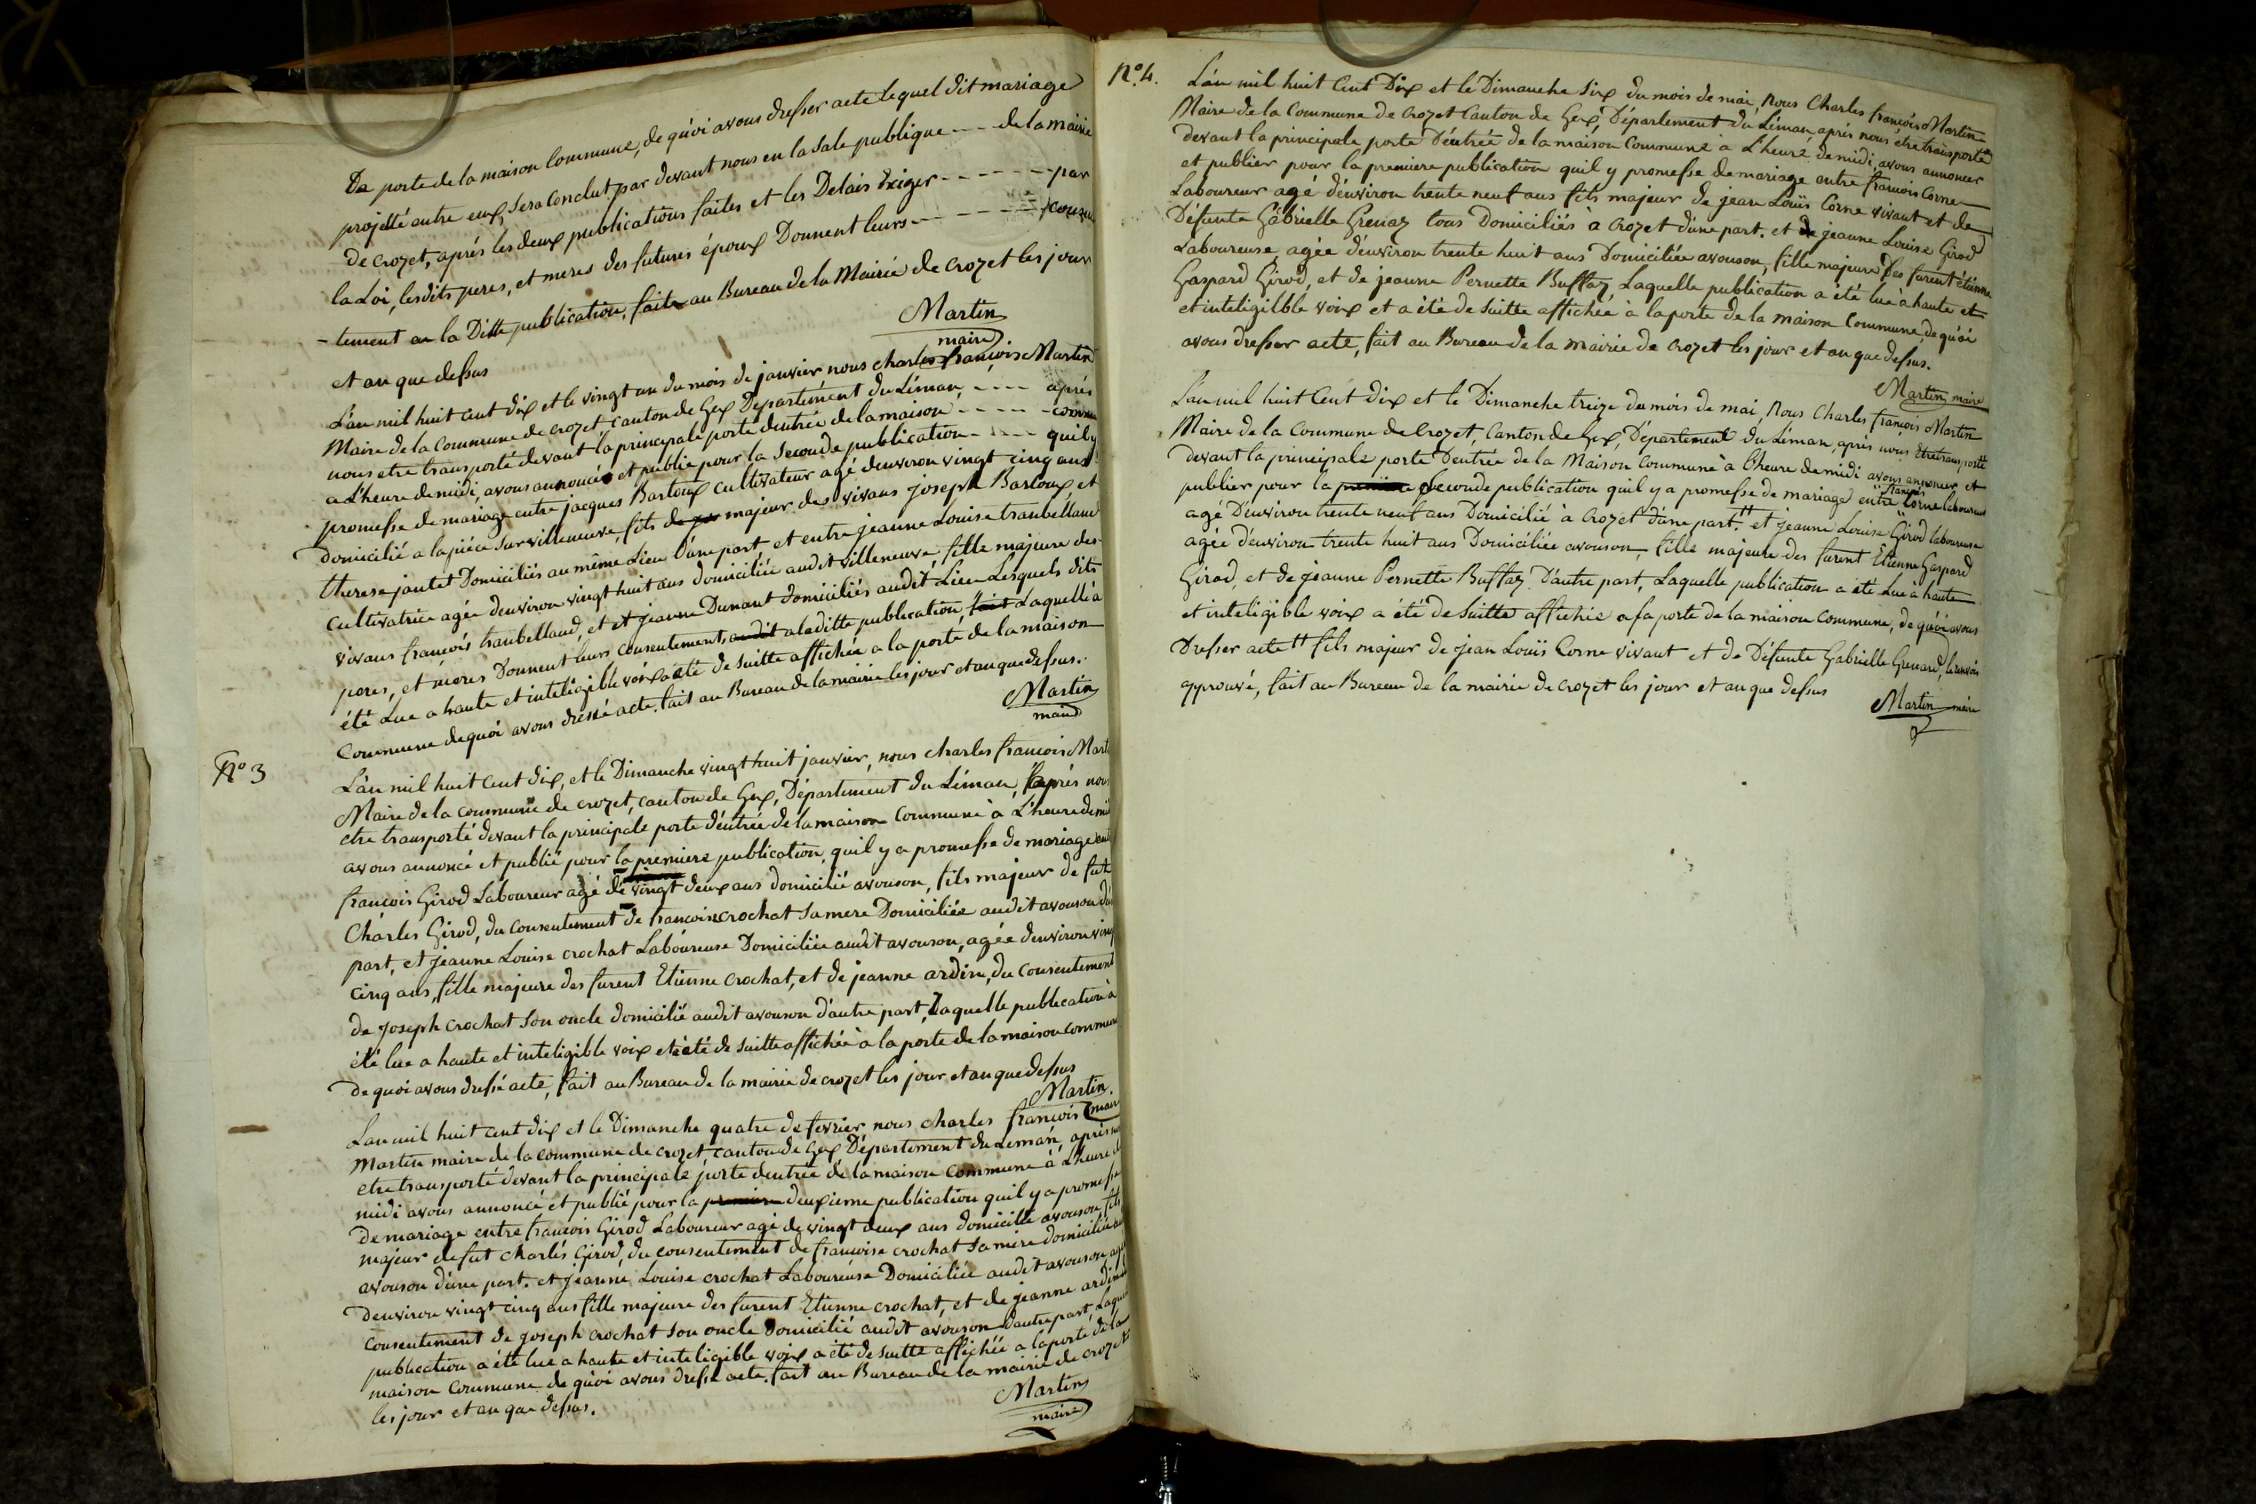 De porte de la maison Commune, de quoi avons dresser acte lequel dit mariage
projetté entre eux sera Conclut par devant nous en la sale publique --- de la mairie
de crozet, aprés les deux publications faites et les Delais Exiger ------ par
la Loi, lesdits peres, et meres des futures époux Donnent leurs ------ consen
-tement a la Ditte publication, faite au Bureau de la Mairie de crozet les jour
et an que dessus
Martin
maire
L'an mil huit cent dix et le vingt un du mois de janvier nous charles françois Martin
Maire de la Commune de crozet canton de Gex Département du Léman, ---- aprés
nous etre transporté devant la principale porte dentrée de la maison ---- comm
a L'heure de midi, avons annoncés et publié pour la seconde publication ---- quil y
promesse de mariage entre jacques Barloux cultivateur agé denviron vingt cinq ans
domicilié a la piéce sur villeneuve, fils de majeur des vivans joseph Barloux et
therese jantet Domiciliés au même Lieu D'une part et entre jeanne Louise traubelland
cultivatrice agée denviron vingt huit ans domiciliée audit villeneuve fille majeure des
vivans françois traubelland, et et jeanne Dunant domiciliés audit Lieu Lesquels dits
peres, et méres Donnent leurs consentement, audit a laditte publication fait Laquelle à
été Lue a haute et inteligible voix a été de suitte affichée a la porte de la maison
Commune dequoi avons dressé acte. fait au Bureau de la mairie les jour et an que dessus.
Martin
maire
N° 3
L'an mil huit cent dix, et le Dimanche vingt huit janvier, nous charles françois Mart
Maire de la commune de crozet, canton de Gex, Département du Léman, aprés nous
etre transporté devant la principale porte d'entrée de la maison Commune à L'heure de mi
avons annoncé et publié pour la premiere publication, quil y a promesse de mariage ent
françois Girod Laboureur agé de vingt deux ans domicilié avouson, fils majeur de fut
Charles Girod, du consentement de francoise crochat sa mere Domiciliée audit avouson du
part, et jeanne Louise crochat Laboureuse Domiciliée audit avouson, agée denviron ving
cinq ans, fille majeure des furent Etienne crochat, et de jeanne ardin, du consentement
de joseph crochat son oncle domicilié audit avouson d'autre part, Laquelle publication a
été lue a haute et inteligible voix et été de suitte affichée à la porte de la maison commun
de quoi avons dressé acte, fait au Bureau de la mairie de crozet les jour et an que dessus
Martin
maire
L'an mil huit cent dix et le Dimanche quatre de fevrier nous charles françois
Martin maire de la commune de crozet canton de Gex Département du Leman, aprés
etre transporté devant la principale porte dentrée de la maison Commune à L'heure de
midi avons annoncé et publié pour la premiere deuxieme publication quil y a promesse
De mariage entre francois Girod Laboureur agé de vingt deux ans domicilié avouson, fils
majeur de fut charles Girod, du consentement de françoise crochat sa mére domiciliée
avouson d'une part. et jeanne Louise crochat Laboureuse Domiciliée audit avouson agée
Denviron vingt cinq ans fille majeure des furent Etienne crochat, et de jeanne ardin
Consentement de joseph crochat son oncle Domicilié audit avouson D'autre part, Laquel
publication a été lue a haute et inteligible voix a été de suitte affichée a la porte de la
maison Commune de quoi avons dressé acte. fait au Bureau de la mairie de crozet
les jour et an que dessus.
Martin
maire
N° 4.
L'an mil huit Cent Dix et le Dimanche Six du mois de mai, Nous Charles françois Martin
Maire de la Commune de Crozet Canton de Gex, Département du Léman, aprés nous être transporté
devant la principale porte D'entrée de la maison Commune a L'heure de midi, avons annoncer
et publier pour la premiere publication quil y promesse de mariage entre francois Corne
Laboureur agé d'environ trente neuf ans fils majeur de jean Louis Corne vivant et de
Défunte Gabrielle Grenaz tous Domiciliés à Crozet d'une part. et de jeanne Louise Girod
Laboureuse, agée d'environ trente huit ans Domiciliée avouson, fille majeure des furent étienne
Gaspard Girod, et de jeanne Pernette Buffaz, Laquelle publication a été lue à haute et
et inteligilble voix et a été de suitte affichée à la porte de la maison Commune, de quoi
avons dresser acte, fait au Bureau de la mairie de crozet les jour et an que dessus.
Martin maire
L'an mil huit Cent dix et le Dimanche treize du mois de mai, Nous Charles françois Martin
Maire de la Commune de Crozet, Canton de Gex, Département du Léman, aprés nous être transporté
devant la principale porte Dentrée de la Maison Commune à L'heure de midi avons annoncer et
publier pour la premiere seconde publication quil y a promesse de mariage entre françois Corne laboureur
agé D'environ trente neuf ans Domicilié à Crozet d'une part. et jeanne Louise Girod laboureuse
agée d'environ trente huit ans Domiciliée avouson, fille majeure des furent Etienne Gaspard
Girod, et de jeanne Pernette Buffaz D'autre part, Laquelle publication a été Lue à haute
et inteligible voix a été de suitte affichée a la porte de la maison commune, de quoi avons
Dresser acte fils majeur de jean Louis Corne vivant et de Défunte Gabrielle Grenard, le renvoi
approuvé, fait au Bureau de la mairie de crozet les jour et an que dessus
Martin maire